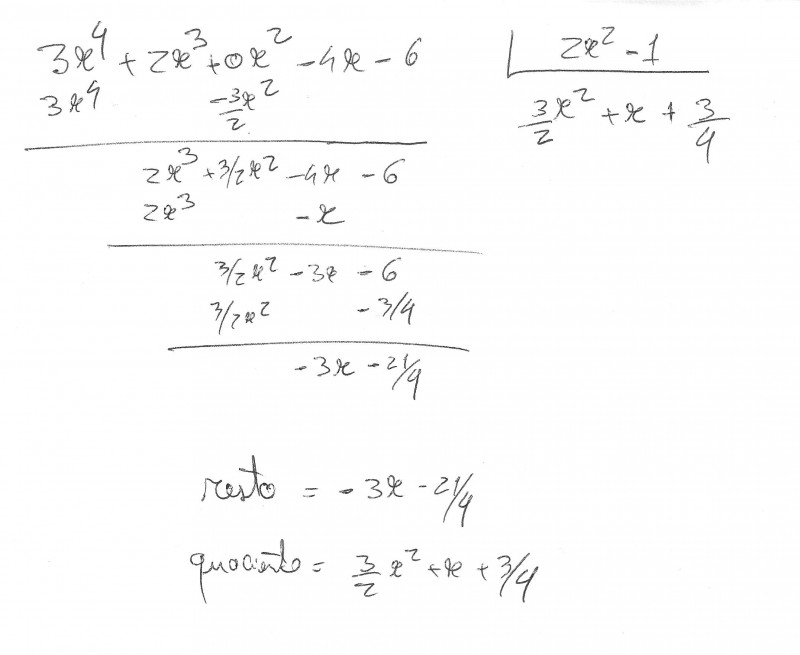 3x⁴ + 2x³ + 0x² - 4x - 6 | 2x² - 1
3x⁴ -3/2x² 3/2x² + x + 3/4
2x³ + 3/2x² - 4x - 6
2x³ - x
3/2x² - 3x - 6
3/2x² - 3/4
- 3x - 21/4
resto = - 3x - 21/4
quociente = 3/2 x² + x + 3/4